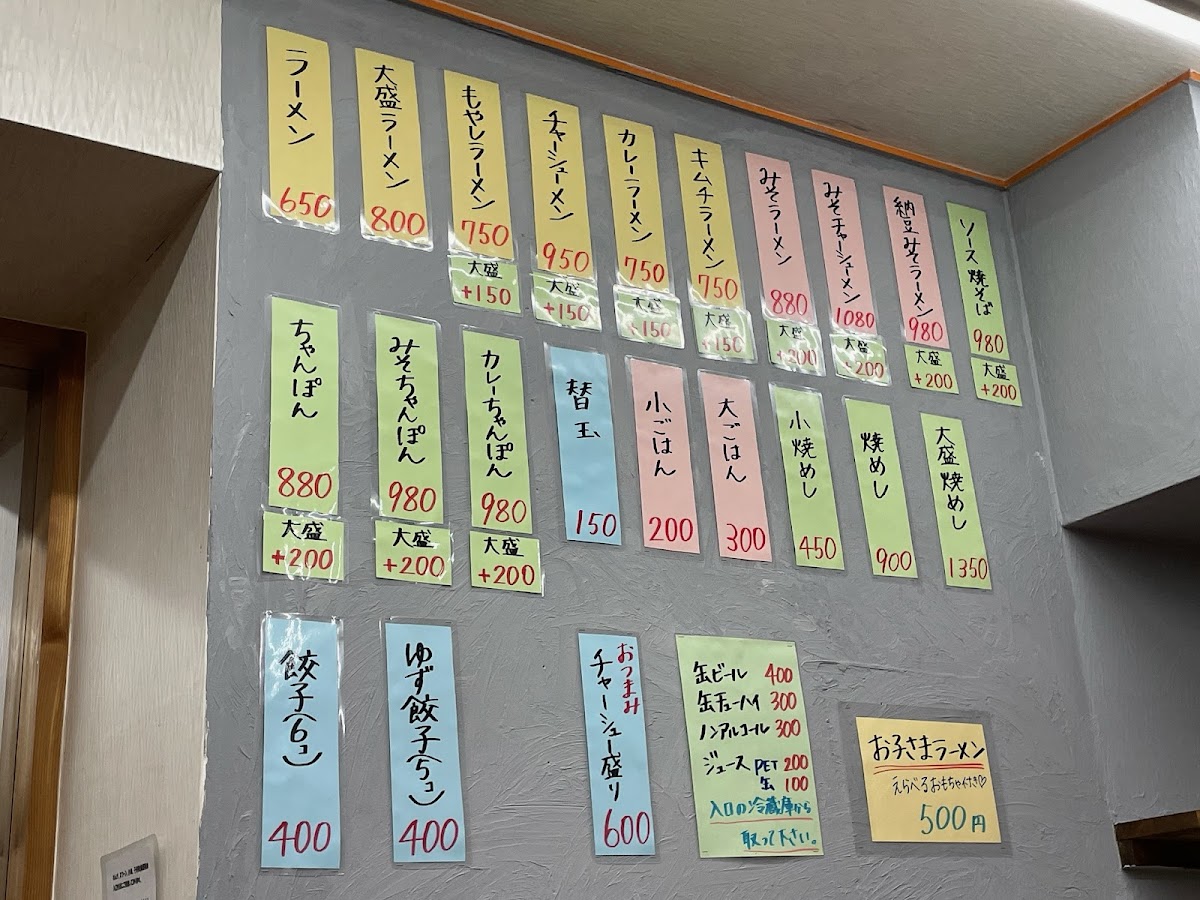 ラーメン
650
大盛ラーメン
800
もやしラーメン
750
大盛
+150
チャーシューメン
950
大盛
+150
カレーラーメン
750
大盛
+150
キムチラーメン
750
大盛
+150
みそラーメン
880
大盛
+200
みそチャーシューメン
1080
大盛
+200
納豆みそラーメン
980
大盛
+200
ソース焼そば
980
大盛
+200
ちゃんぽん
880
大盛
+200
みそちゃんぽん
980
大盛
+200
カレーちゃんぽん
980
大盛
+200
替玉
150
小ごはん
200
大ごはん
300
小焼めし
450
焼めし
900
大盛焼めし
1350
餃子(6コ)
400
ゆず餃子(5コ)
400
おつまみ
チャーシュー盛り
600
缶ビール 400
缶チューハイ 300
ノンアルコール 300
ジュース PET 200
缶 100
入口の冷蔵庫から
取って下さい。
お子さまラーメン
えらべるおもちゃ付き♡
500円